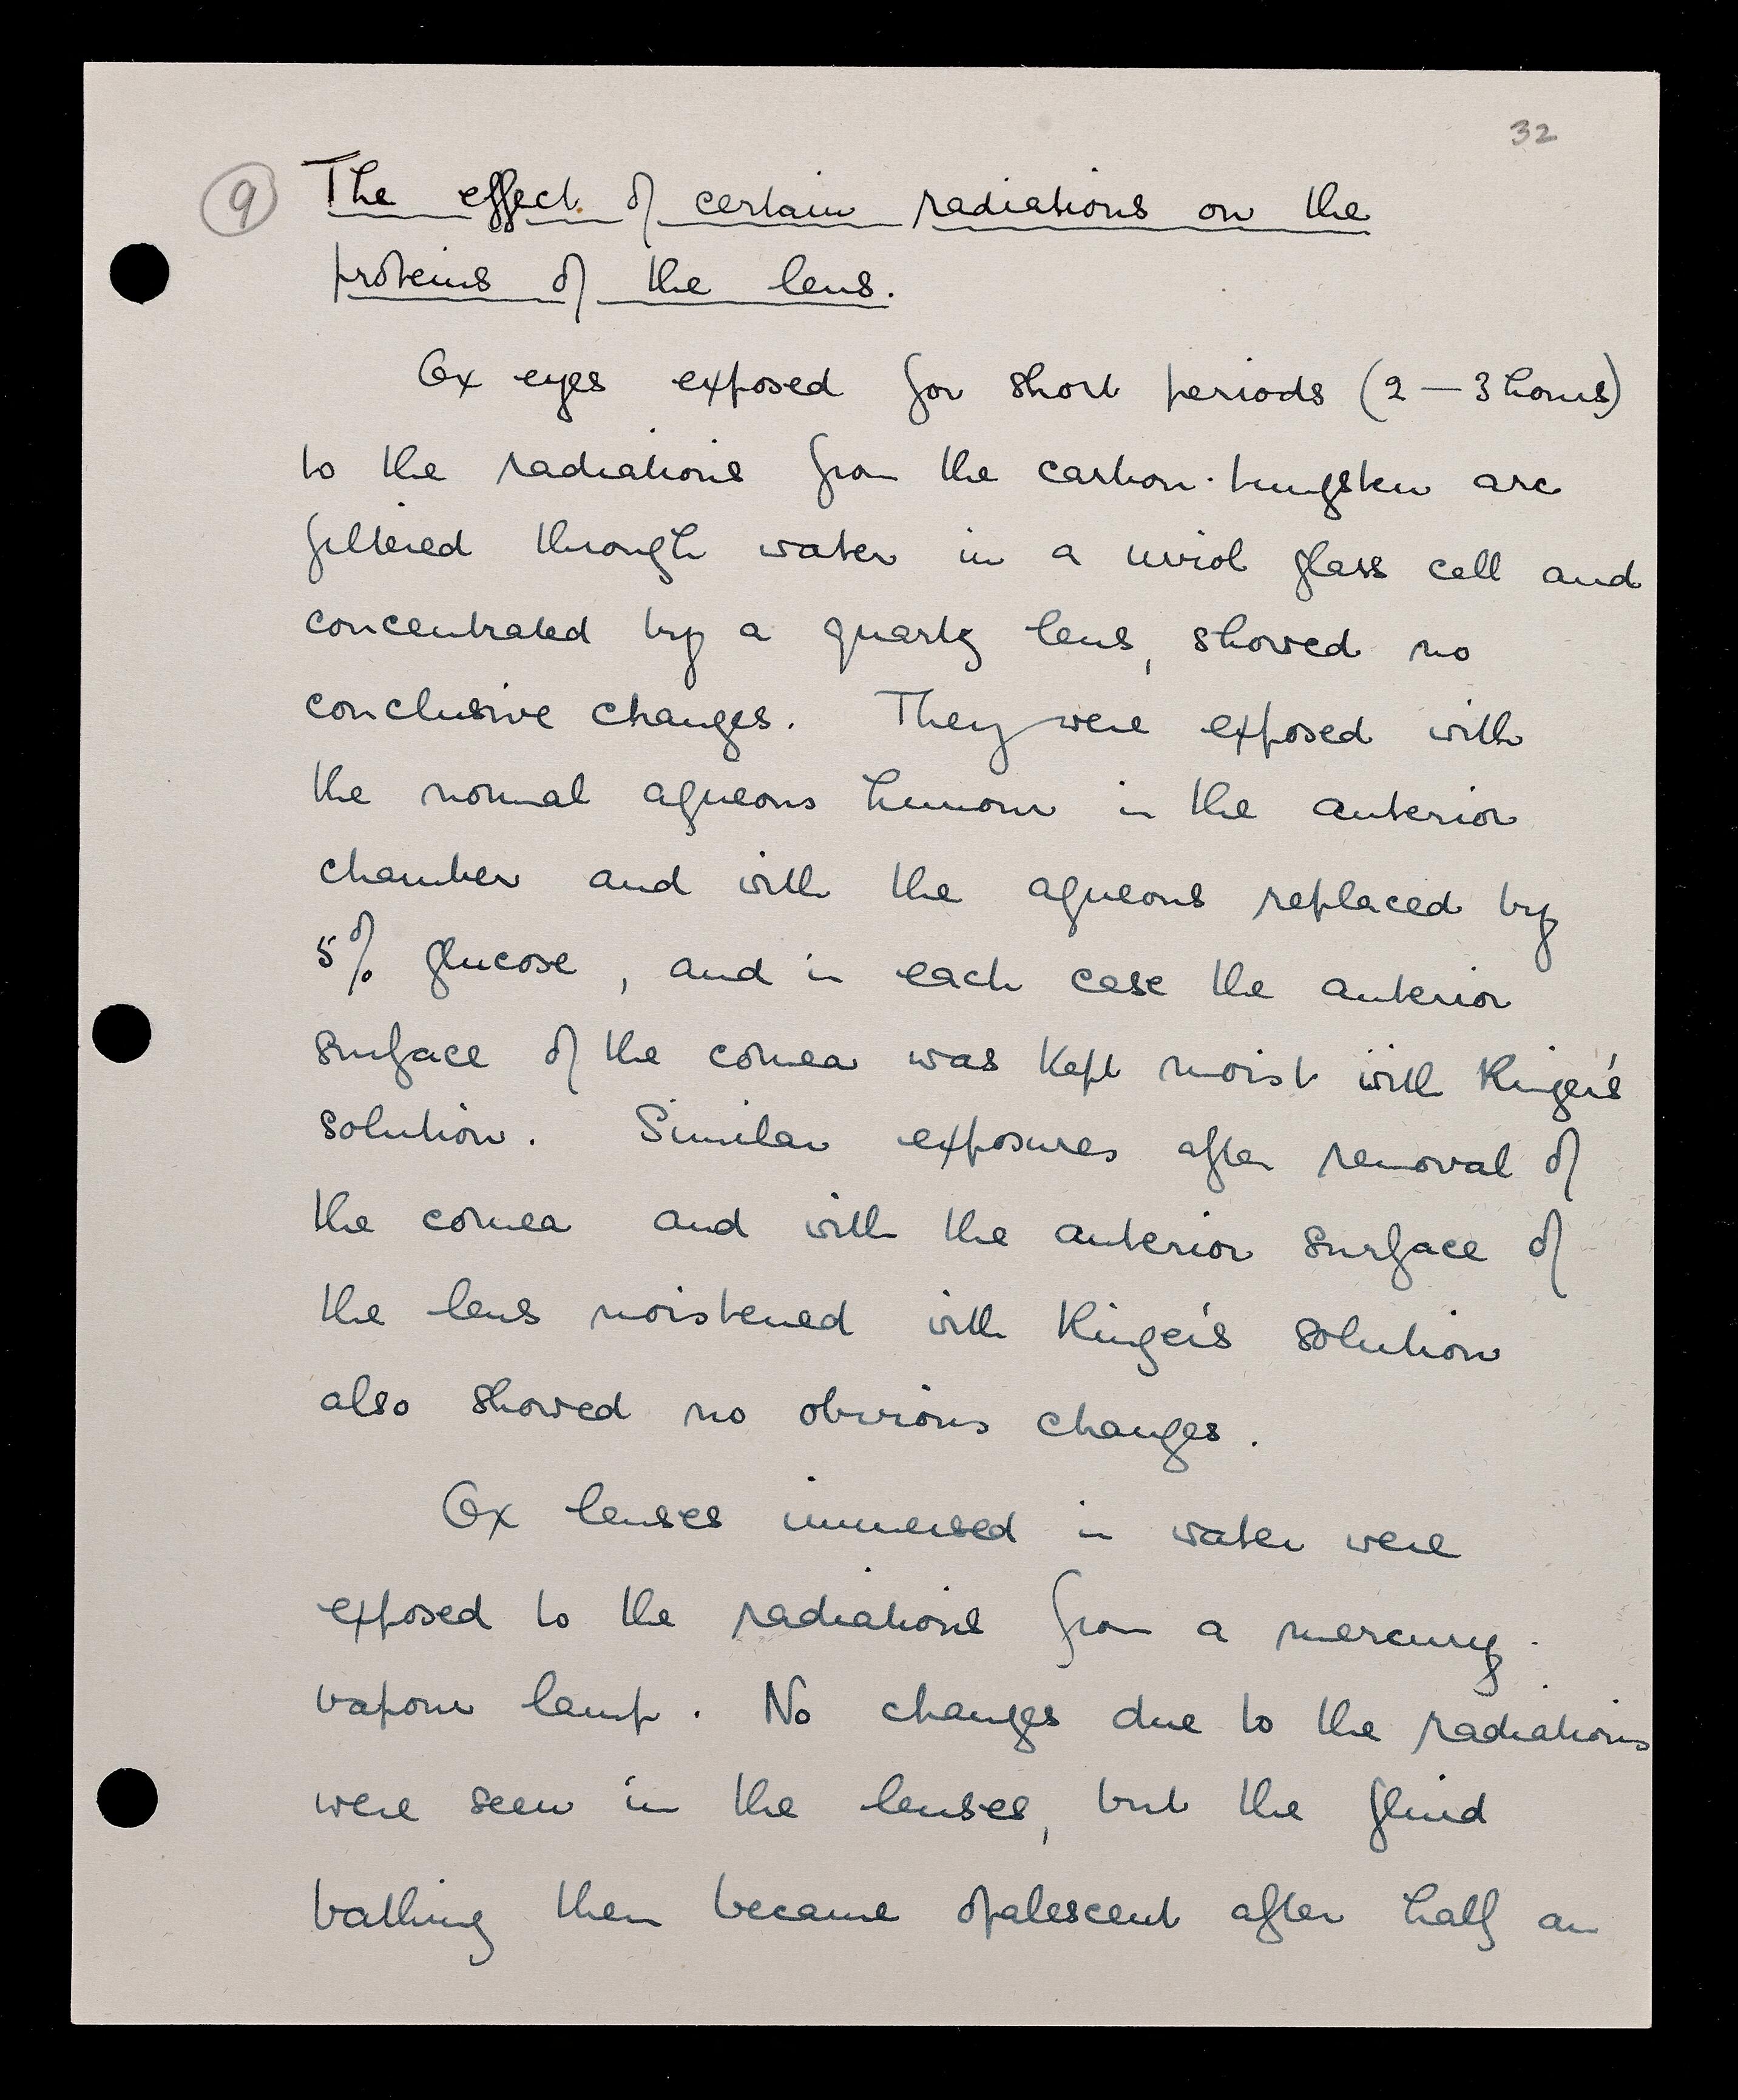 32
9 The effect of certain radiations on the
proteins of the lens.
Ox eyes exposed for short periods (2 — 3 hours)
to the radiations from the carbon-tungsten arc
filtered through water in a uviol glass cell and
concentrated by a quartz lens, showed no
conclusive changes. They were exposed with
the normal aqueous humour in the anterior
chamber and with the aqueous replaced by
5% glucose, and in each case the anterior
surface of the cornea was kept moist with Ringer's
solution. Similar exposures after removal of
the cornea and with the anterior surface of
the lens moistened with Ringer's solution
also showed no obvious changes.
Ox lenses immersed in water were
exposed to the radiations from a mercury-
vapour lamp. No changes due to the radiations
were seen in the lenses, but the fluid
bathing them became opalescent after half an